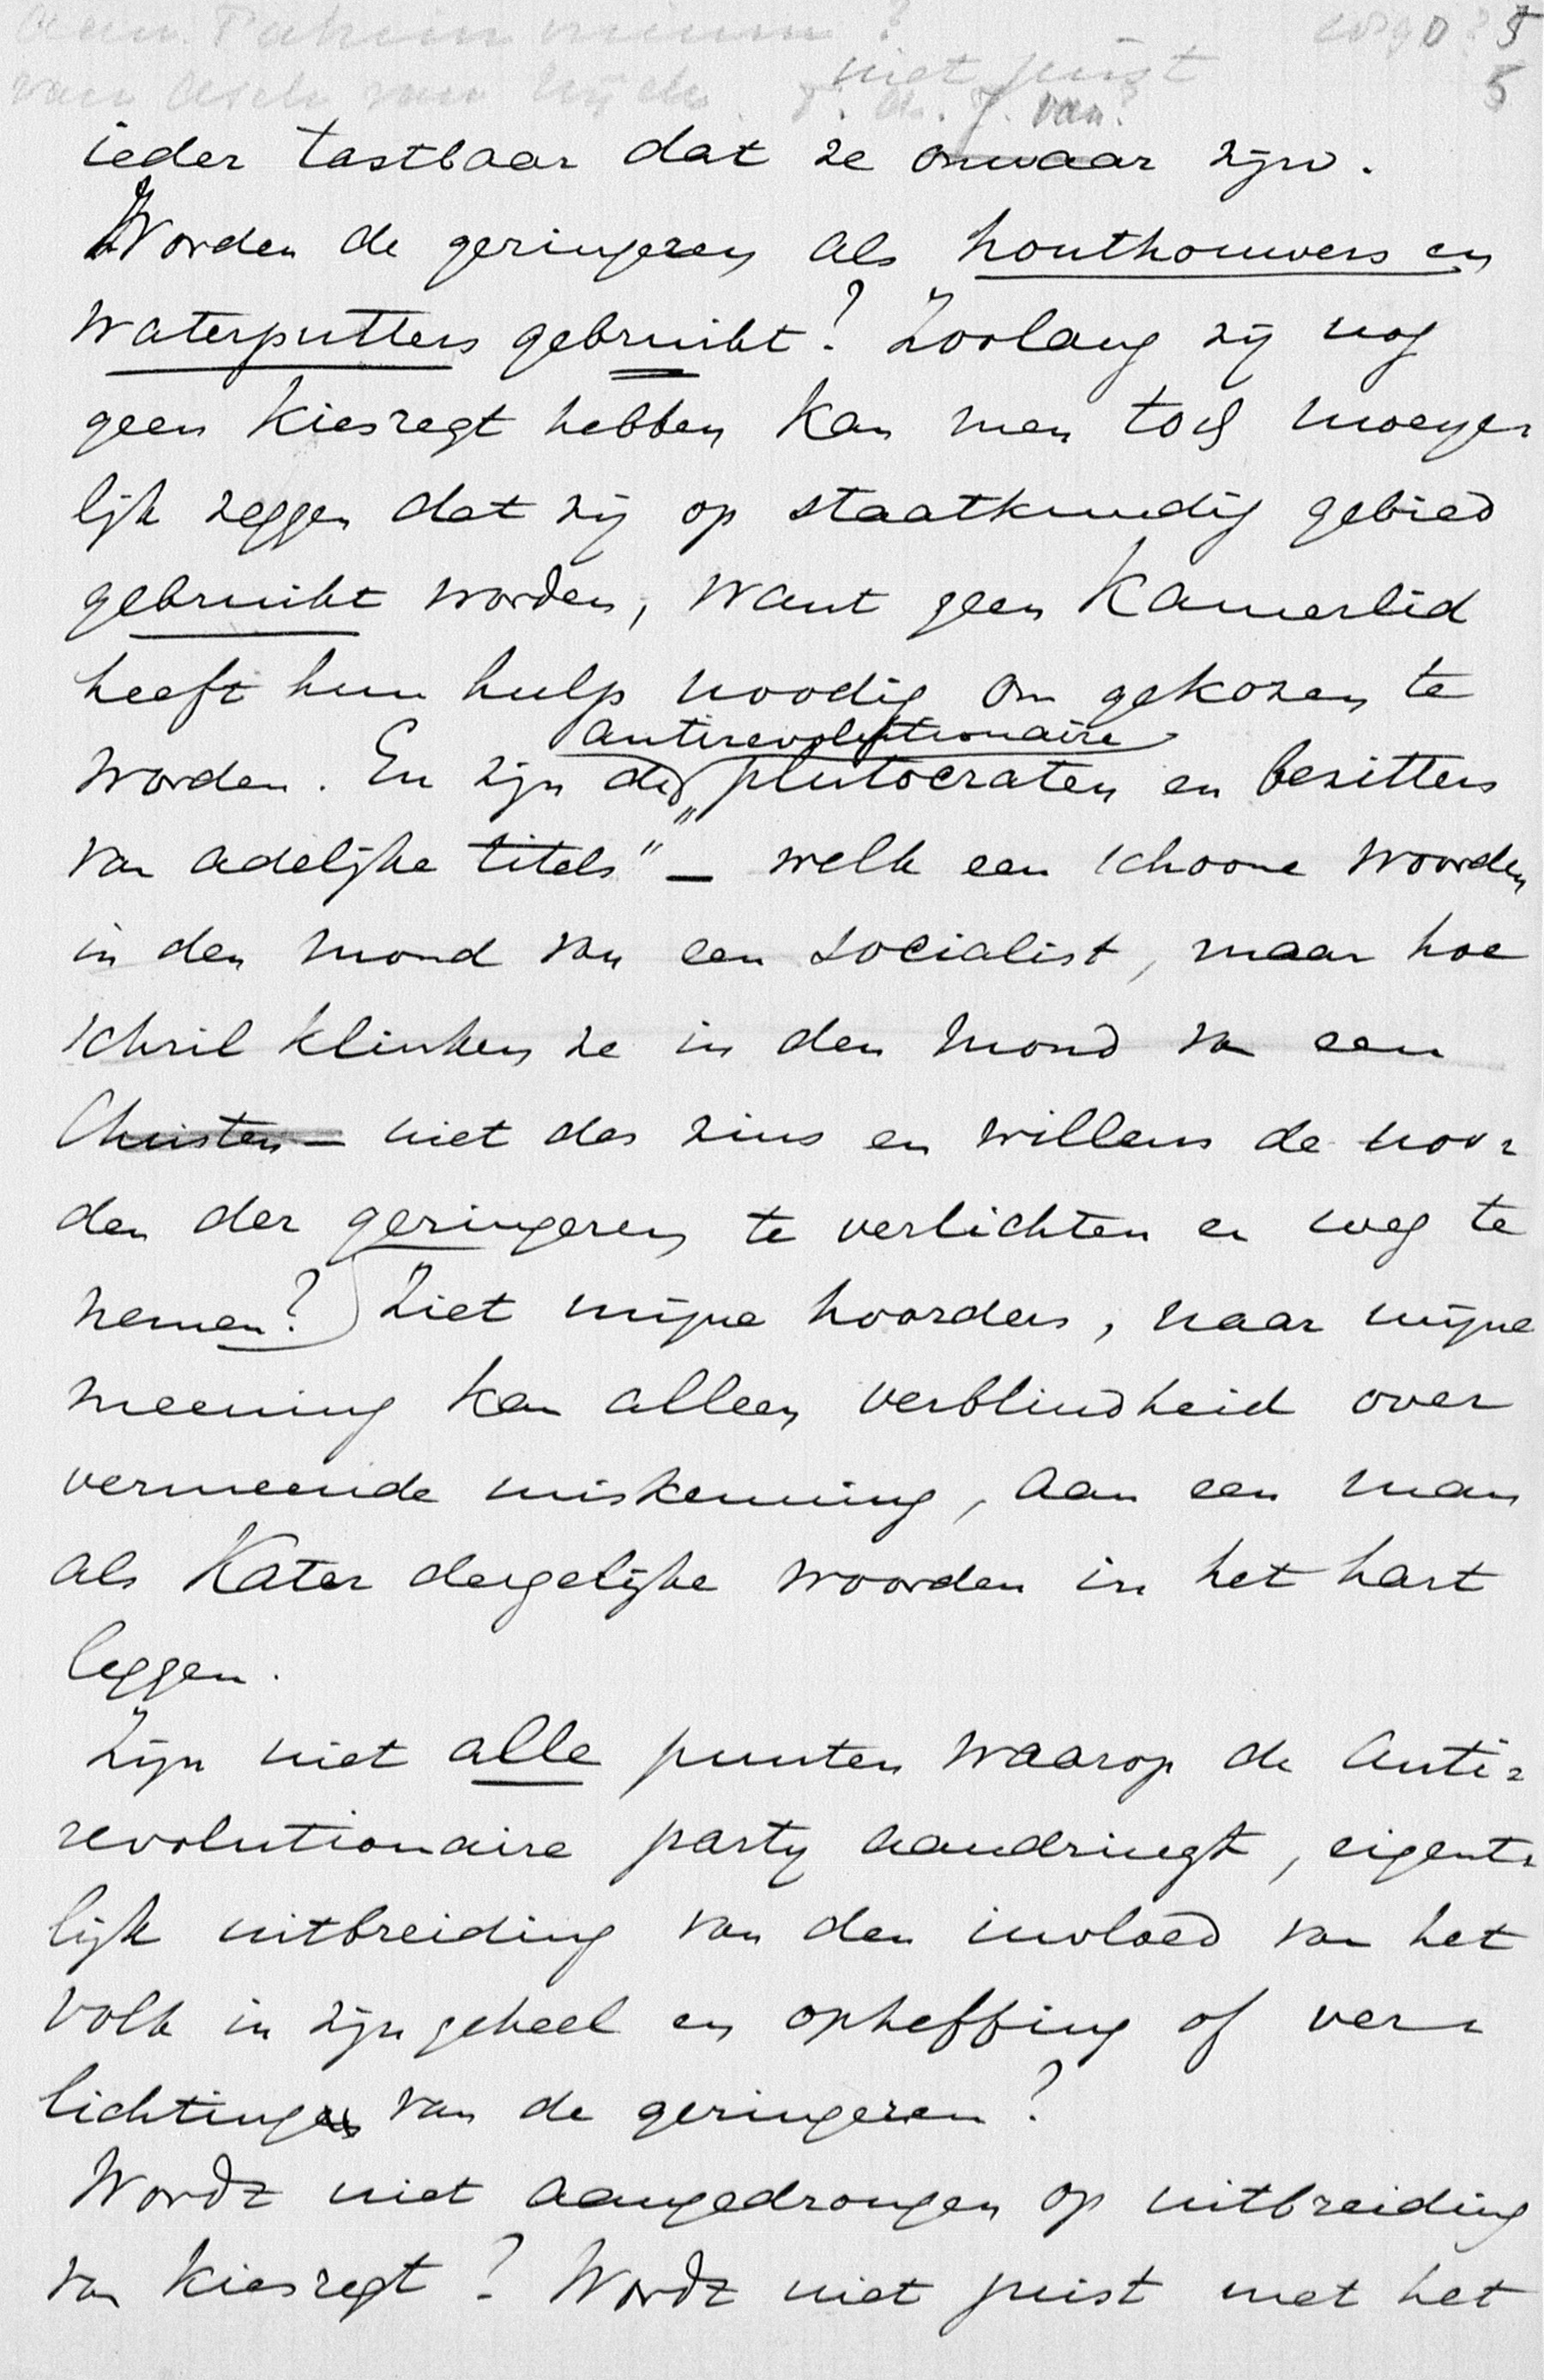 niet juist
5
van
5
ieder tastbaar dat ze onwaar zijn.
Worden de geringeren als houthouwers en
waterputters gebruikt? Zoolang zij nog
geen Kiesregt hebben kan men toch moeye=
lijk zeggen dat zij op staatkundig gebied
gebruikt worden, want geen Kamerlid
heeft hun hulp noodig om gekozen te
antirevolutionaire
worden. En zijn die "plutocraten en bezitters
van adelijke titels" – welk een schoone woorden
in den mond van een socialist, maar hoe
schril klinken ze in den mond van een
Christen – niet des zins en willens de noo=
den der geringeren te verlichten en weg te
nemen? Ziet mijne hoorders, naar mijne
meening kan alleen verblindheid over
vermeende miskenning, aan een man
als Kater dergelijke woorden in het hart
leggen.
Zijn niet alle punten waarop de Anti=
revolutionaire party aandringt, eigent=
lijk uitbreiding van den invloed van het
volk in zijn geheel en opheffing of ver=
lichting van de geringeren?
Wordt niet aangedrongen op uitbreiding
van Kiesregt? Wordt niet juist met het